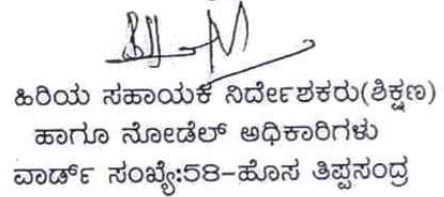 ಹಿರಿಯ ಸಹಾಯಕ ನಿರ್ದೇಶಕರು(ಶಿಕ್ಷಣ)
ಹಾಗೂ ನೋಡೆಲ್ ಅಧಿಕಾರಿಗಳು
ವಾರ್ಡ್ ಸಂಖ್ಯೆ:58-ಹೊಸ ತಿಪ್ಪಸಂದ್ರ